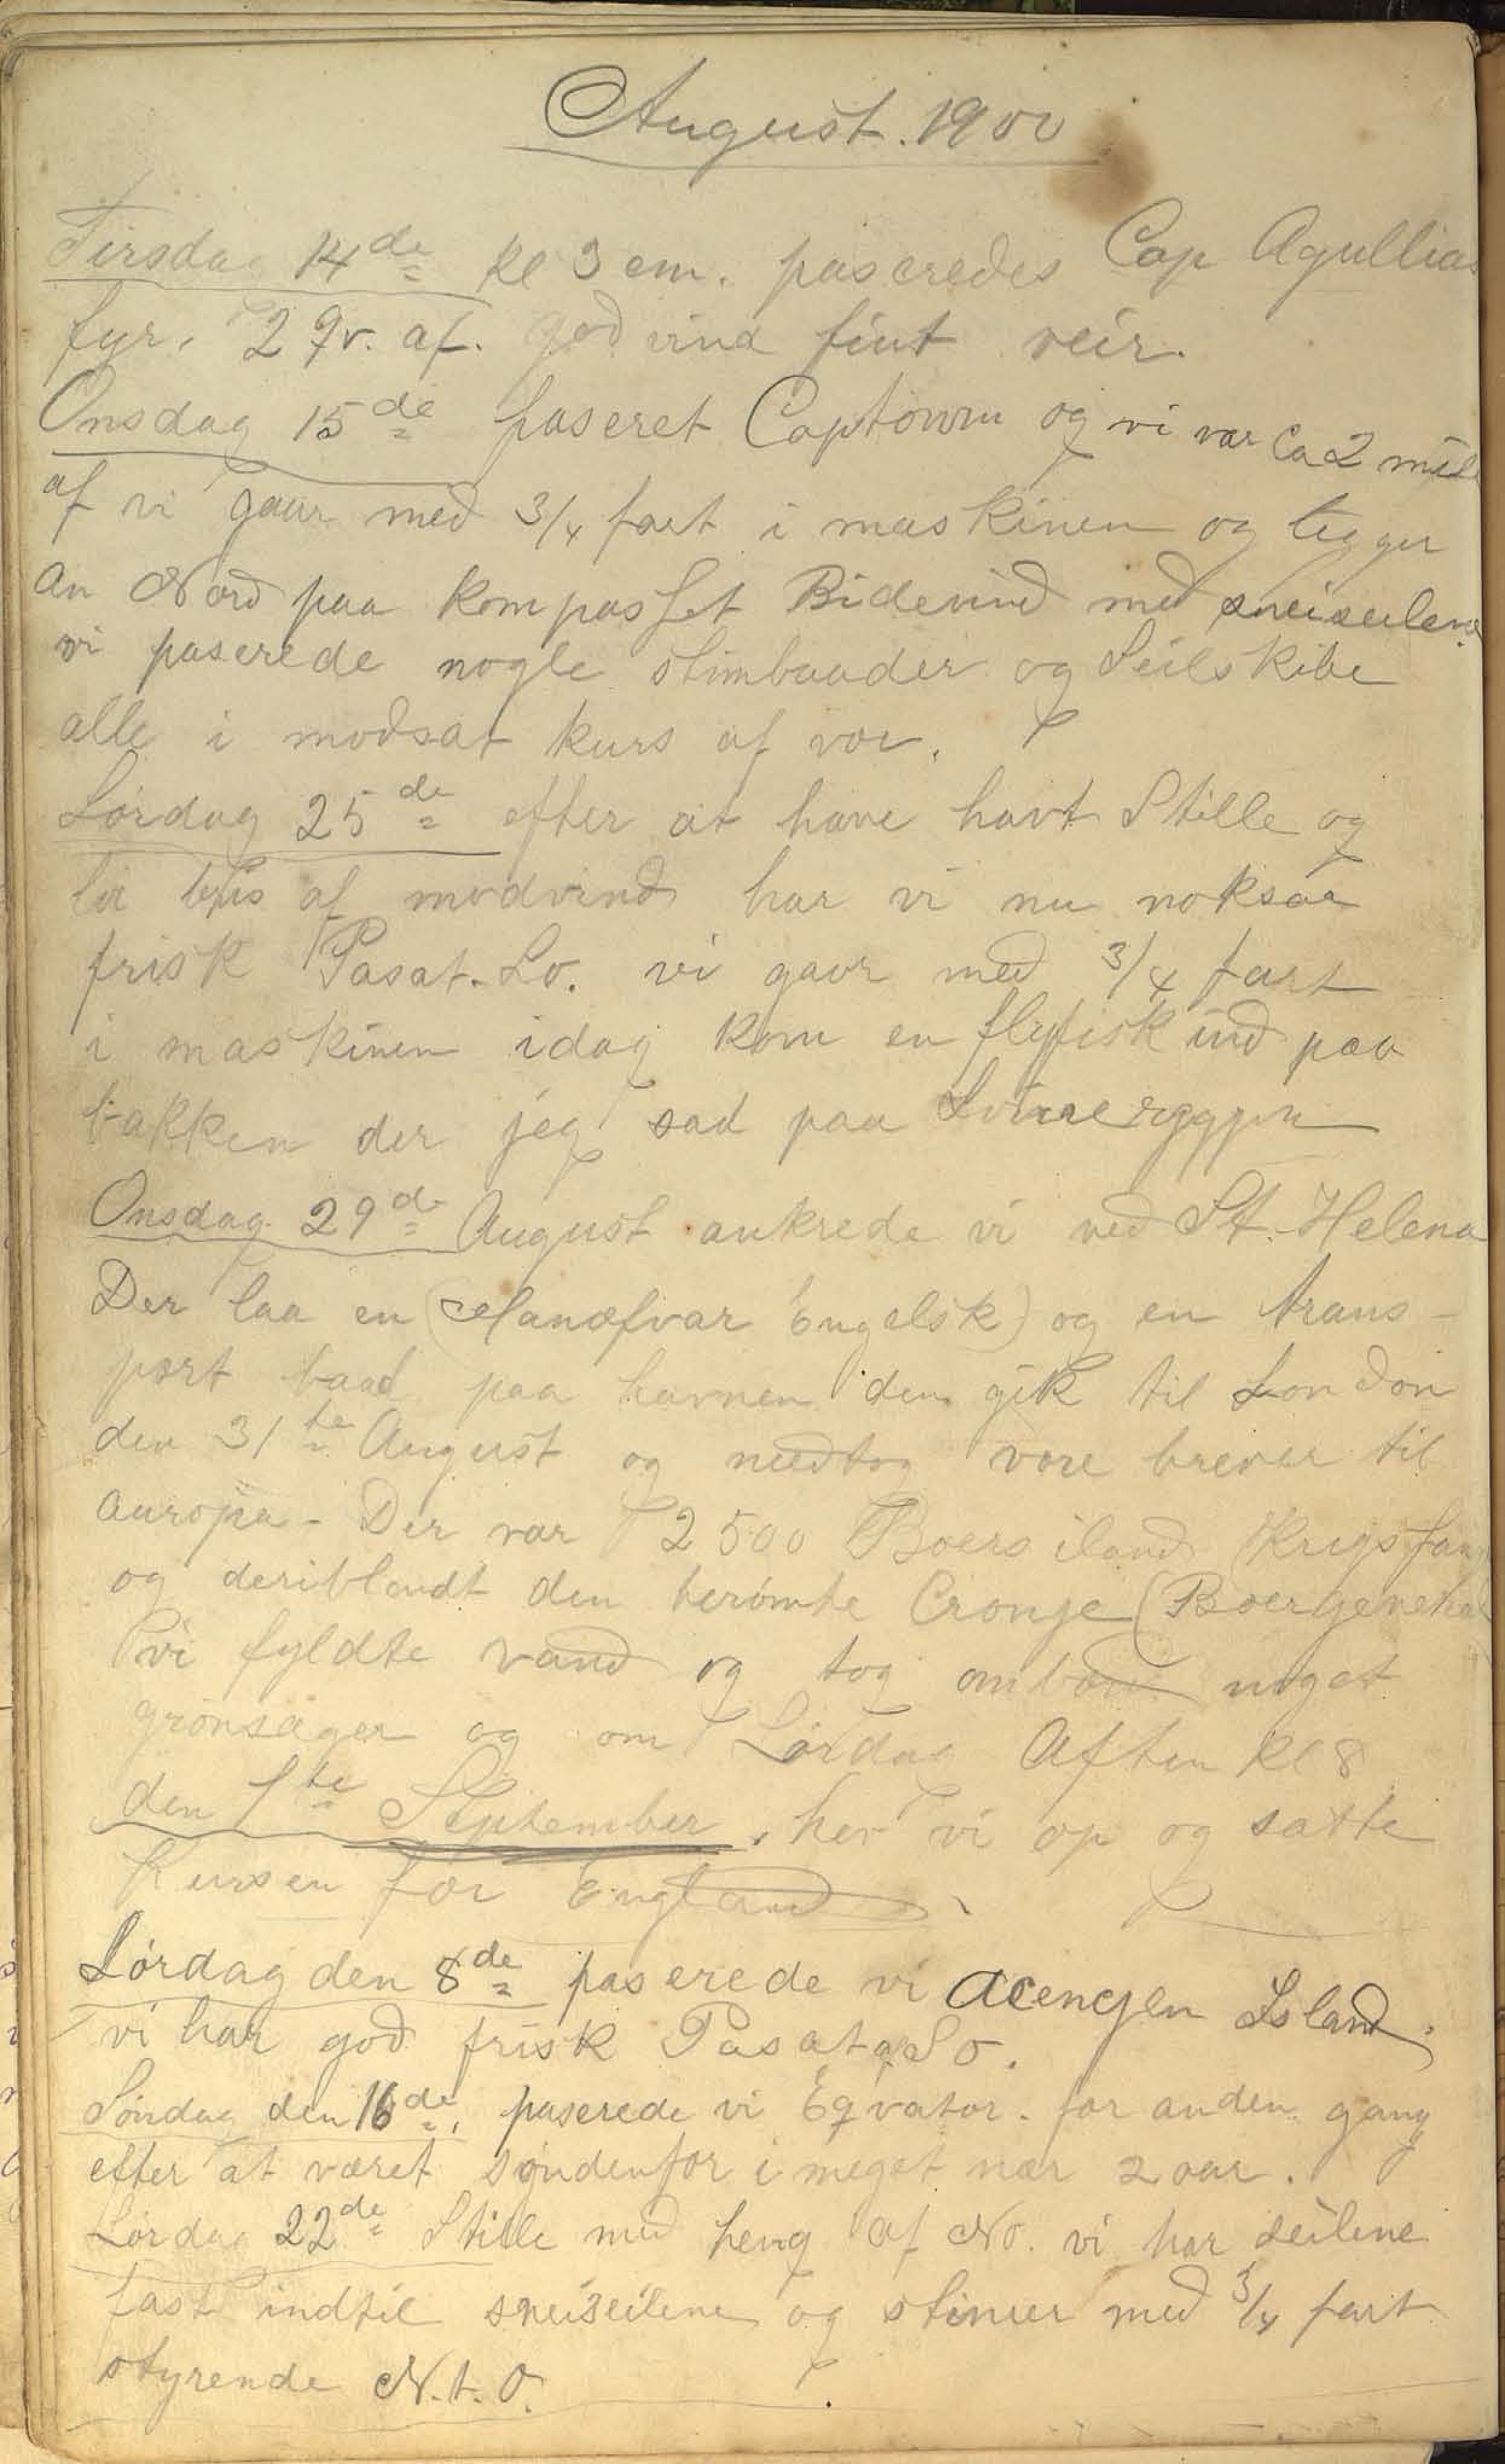 August. 1900
Tirsdag 14de kl 3 em. paseredes Cap Agullias
fyr. 2 qv. af. god vind fint veir.
Onsdag 15de paseret Captown og vi var Ca 2 mil
af vi gaar med 3/4 fart i maskinen og ligger
an Nord paa kompasset Bidevind med sneiseilene
vi paserede nogle stimbaader og Seilskibe
alle i modsat kurs af vor.
Lørdag 25de efter at have havt Stille og
af modvind har vi nu noksaa
frisk Pasat. So. vi gaar med 3/4 fart
i maskinen idag kom en flyfisk ind paa
bakken der jeg sad paa Svineryggen
Onsdag 29de August ankrede vi ved St. Helena
Der laa en (Manofvar Engelsk) og en trans-
port baad paa havnen den gik til London
den 31te August og medtog vore brever til
Auropa - Der var 2500 Boers iland Krigsfang
og deriblandt den berømte Cronje (Boergeneral
vi fyldte vand og tog ombord noget
grønsager og om Lørdag Aften Kl 8
den 1te September, hev vi op og satte
Kursen for England.
Lørdag den 8de paserede vi Acencjen Island.
vi har god frisk Pasat af So.
Søndag den 16de, paserede vi Eqvator. for anden gang
efter at været søndenfor i meget nær 2 aar.
Lørdag 22de Stille med heng af No. vi har seilene
fast indtil sneiseilene og stimer med 3/4 fart
styrende N.t.O.